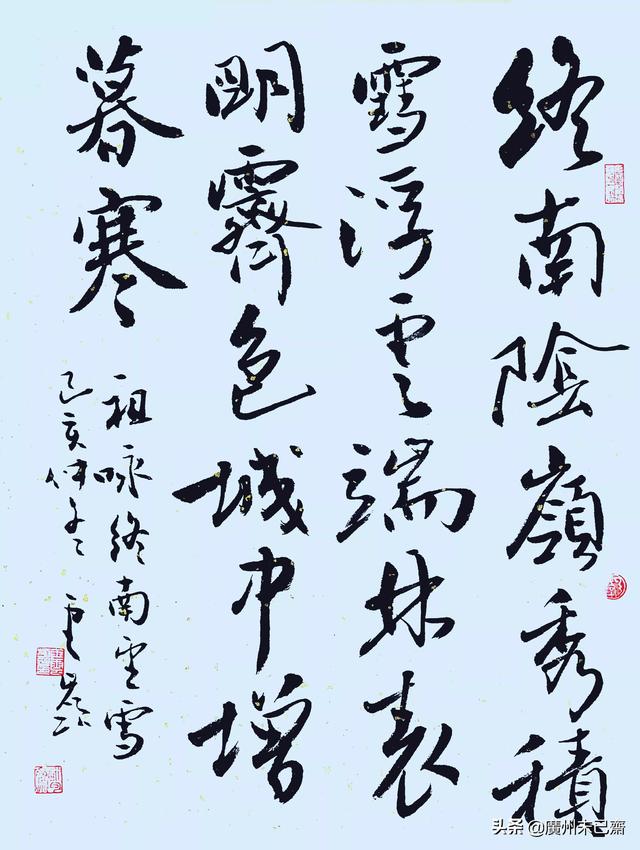 終南陰嶺秀積
雪浮雲端林表
明霽色城中增
暮寒
祖咏終南雪
己亥仲冬
头条 @廣州未已齋